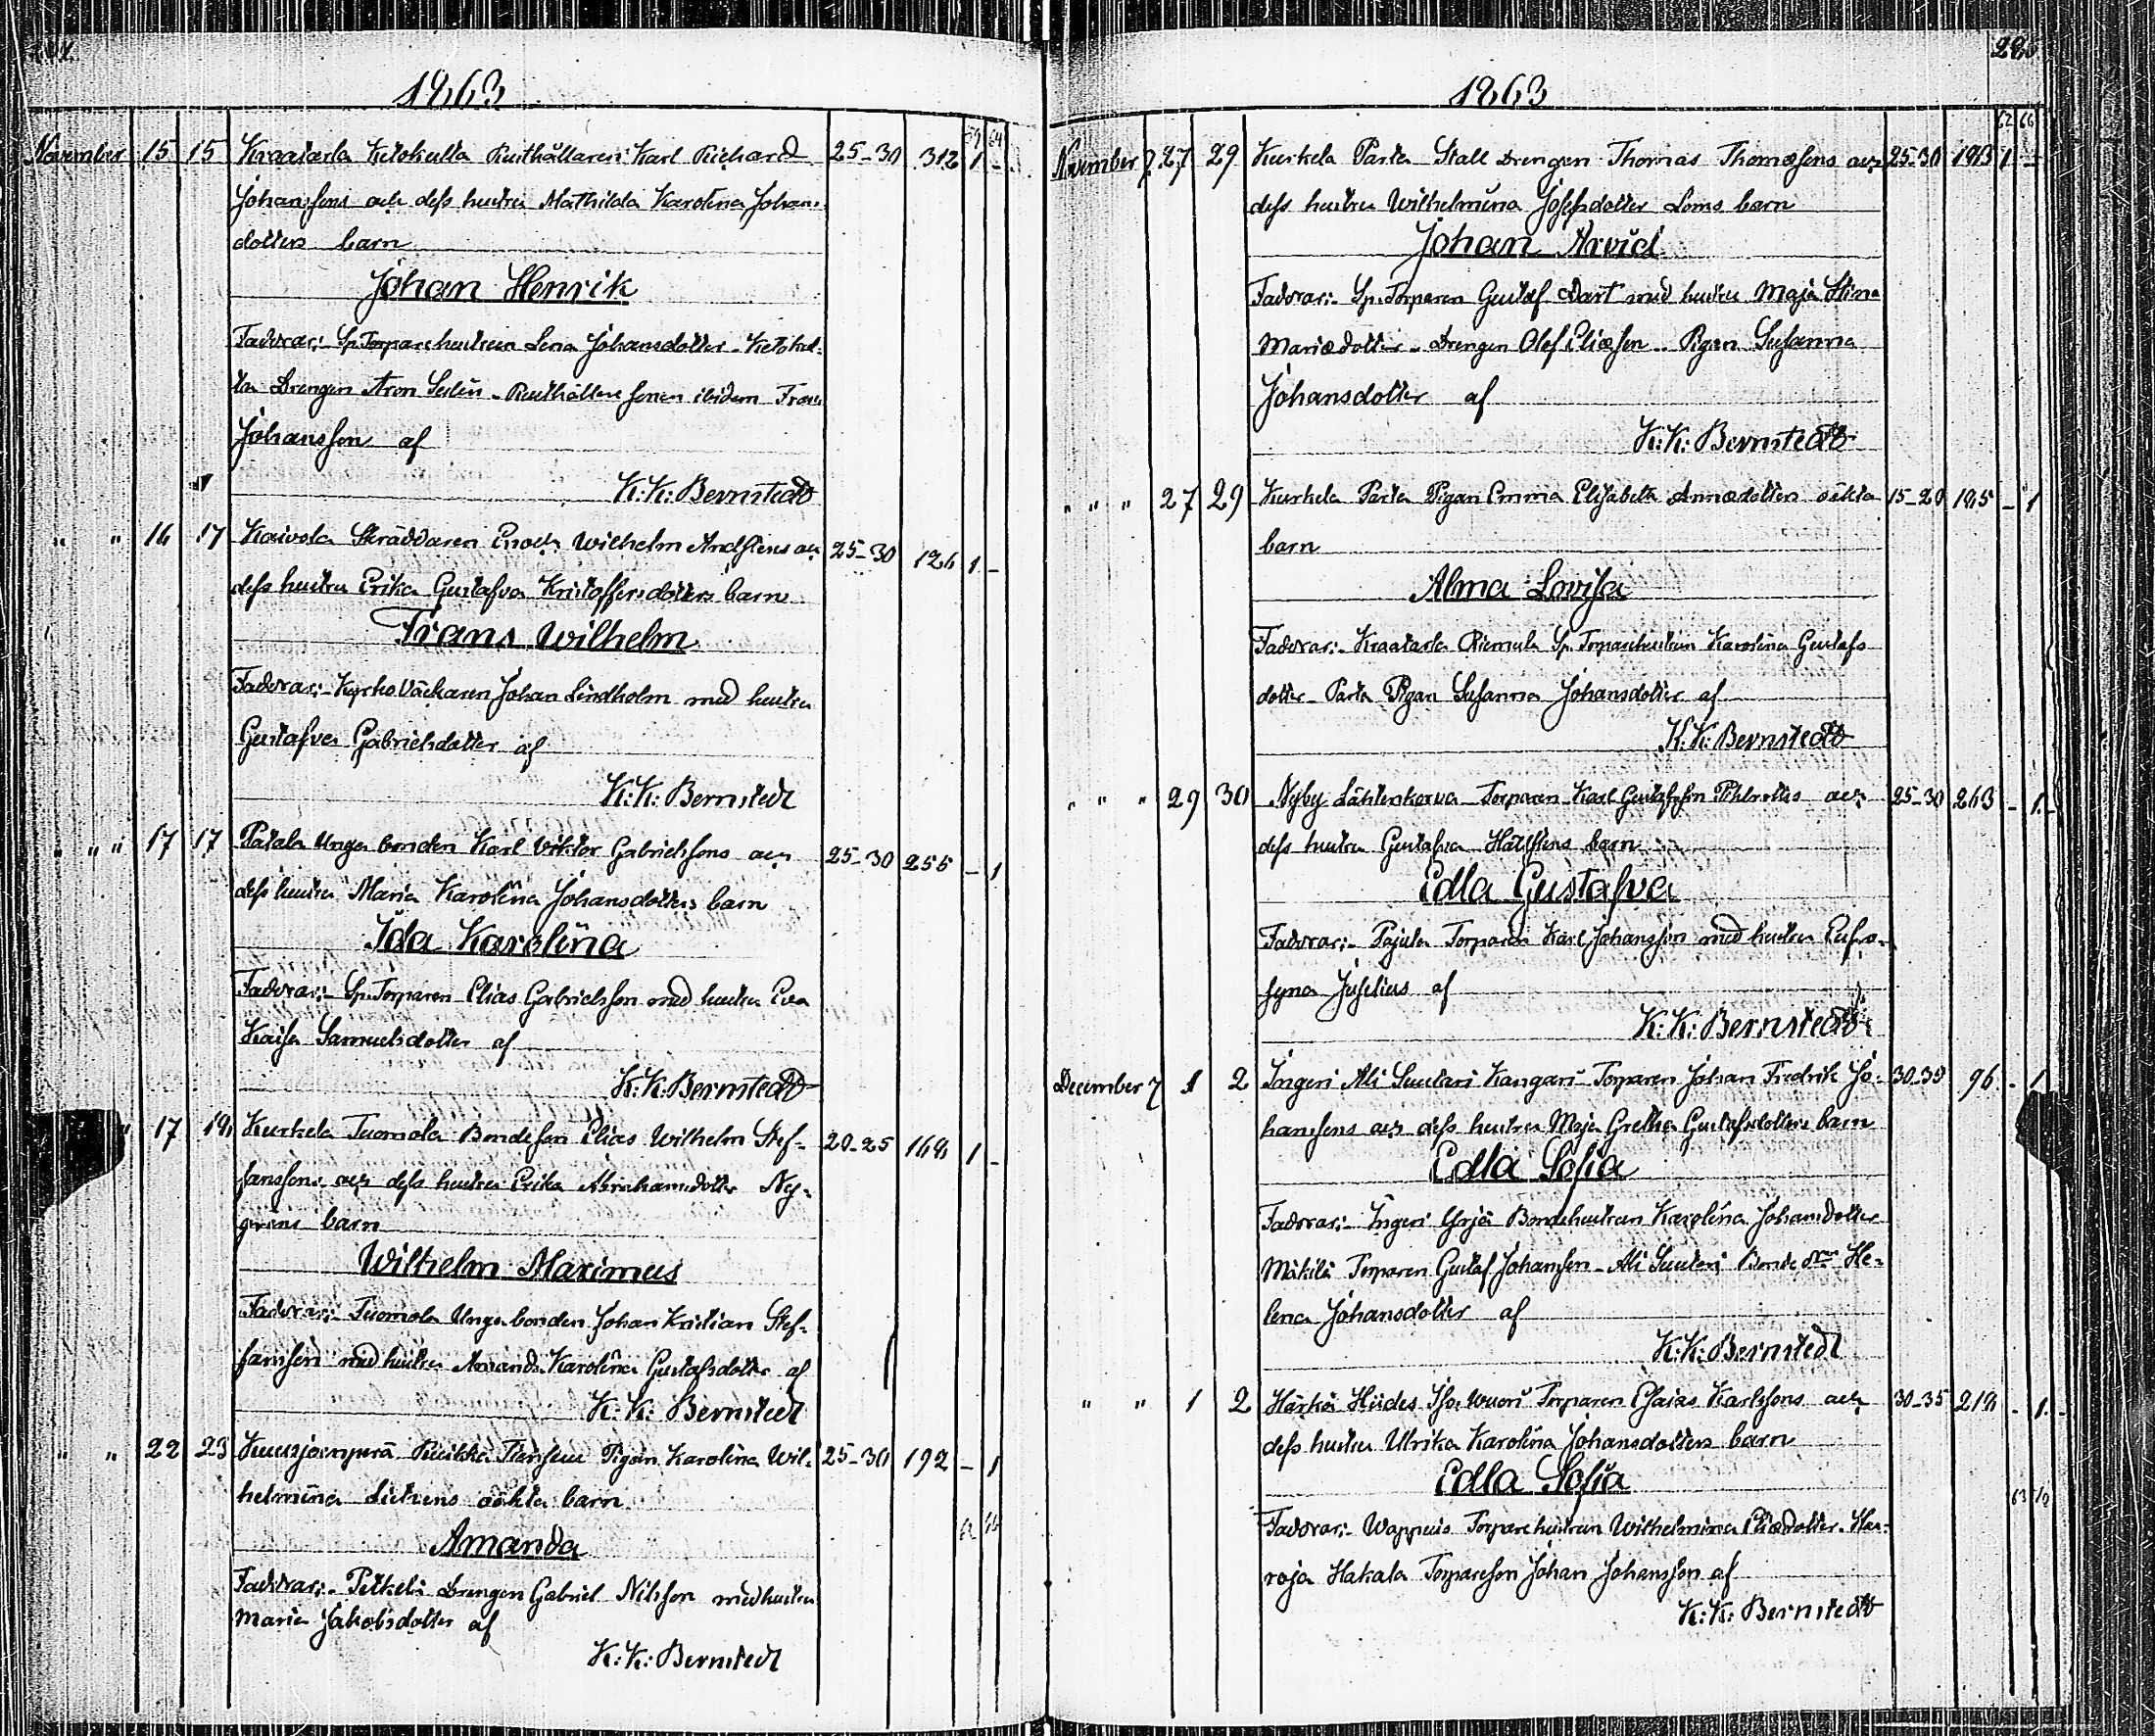 1863
November 15 15 Kraatarla Ketokulla Rusthållaren Karl Richard 25-30 312 1 -
Johanssons och dess hustru Mathilda Karolina Johans-
dotters barn
Johan Henrik
Faddrar:- Sp. Torparehustrun Lena Johansdotter - Ketokul-
la Drengen Aron Selin - Rusthållare sonen ibidem Frans
Johansson af
K:K: Bernstedt
" " 16 17 Kaivola Skräddaren Enoch Wilhelm och 25-30 126 1 -
dess hustru Erika Gustafva Kristoffersdotters barn
Frans Wilhelm
Faddrar:- Kyrko Väckaren Johan Lindholm med hustru
Gustafva Gabrielsdotter af
K:K: Bernstedt
" " " 17 17 Unga bonden Karl Viktor Gabrielssons och 25-30 255 - 1
dess hustru Maria Karolina Johansdotters barn
Ida Karolina
Faddrar:- Sp. Torparen Elias Gabrielsson med hustru Eva
Kaisa Samuelsdotter af
K:K: Bernstedt
" 17 19 Kurkela Tuomola Bondeson Elias Wilhelm Stef- 20-25 169 1 -
fanssons och dess hustru Erika Abrahamsdotter Ny-
grens barn
Wilhelm Maximus
Faddrar:- Tuomola Unga bonden Johan Kristian Stef-
fansson med hustru Amanda Karolina Gustafsdotter af
K:K: Bernstedt
" " 22 23 Kuusjoenperä Pigan Karolina Wil- 25-30 192 - 1
helmina oäkta barn
62 66
Amanda
Faddrar:- Drengen Gabriel Nilsson med hustru
Maria Jakobsdotter af
K:K: Bernstedt
225
1863
62 66
November 27 29 Kurkela Parta Stall Drengen Thomas Thomassons och 25-30 193 1 -
dess hustru Wilhelmina Josefsdotter Loms barn
Johan Arvid
Faddrar:- Sp. Torparen Gustaf Dart med hustru Maja Stina
Mariædotter - Drengen Olof Eliasson - Pigan Susanna
Johansdotter af
K:K: Bernstedt
" " " 27 29 Kurkela Parta Pigan Emma Elisabeth Annædotters oäkta 15-20 195 - 1
barn
Alma Lovisa
Faddrar:- Kraatarla Sp. Torparehustrun Karolina Gustafs-
dotter - Parta Pigan Susanna Johansdotter af
K:K: Bernstedt
" " " 29 30 Nyby Lähtenkorva Torparen Karl Gustafsson och 25-30 263 - 1
dess hustru Gustafva Hällstens barn
Edla Gustafva
Faddrar:- Pajula Torparen Karl Johansson med hustru Eufro-
syna Juselius af
K:K: Bernstedt
December 1 2 Ingeri Ali Suutari Kangari Torparen Johan Fredrik Jo- 30-35 96 - 1
hanssons och dess hustru Maja Gretha Gustafsdotters barn
Edla Sofia
Faddrar:- Ingeri Bondehustrun Karolina Johansdotter
Mäkilä Torparen Gustaf Johansson - Ali Suutari Bonde dr He-
lena Johansdotter af
K:K: Bernstedt
" " 1 2 Härkä Hiides Isovuori Torparen Esaias Karlssons och 30-35 219 - 1
dess hustru Ulrika Karolina Johansdotters barn
Edla Sofia
Faddrar:- Torparehustrun Wilhelmina Eliædotter. Har-
roja Hakala Torpareson Johan Johansson af
K:K: Bernstedt